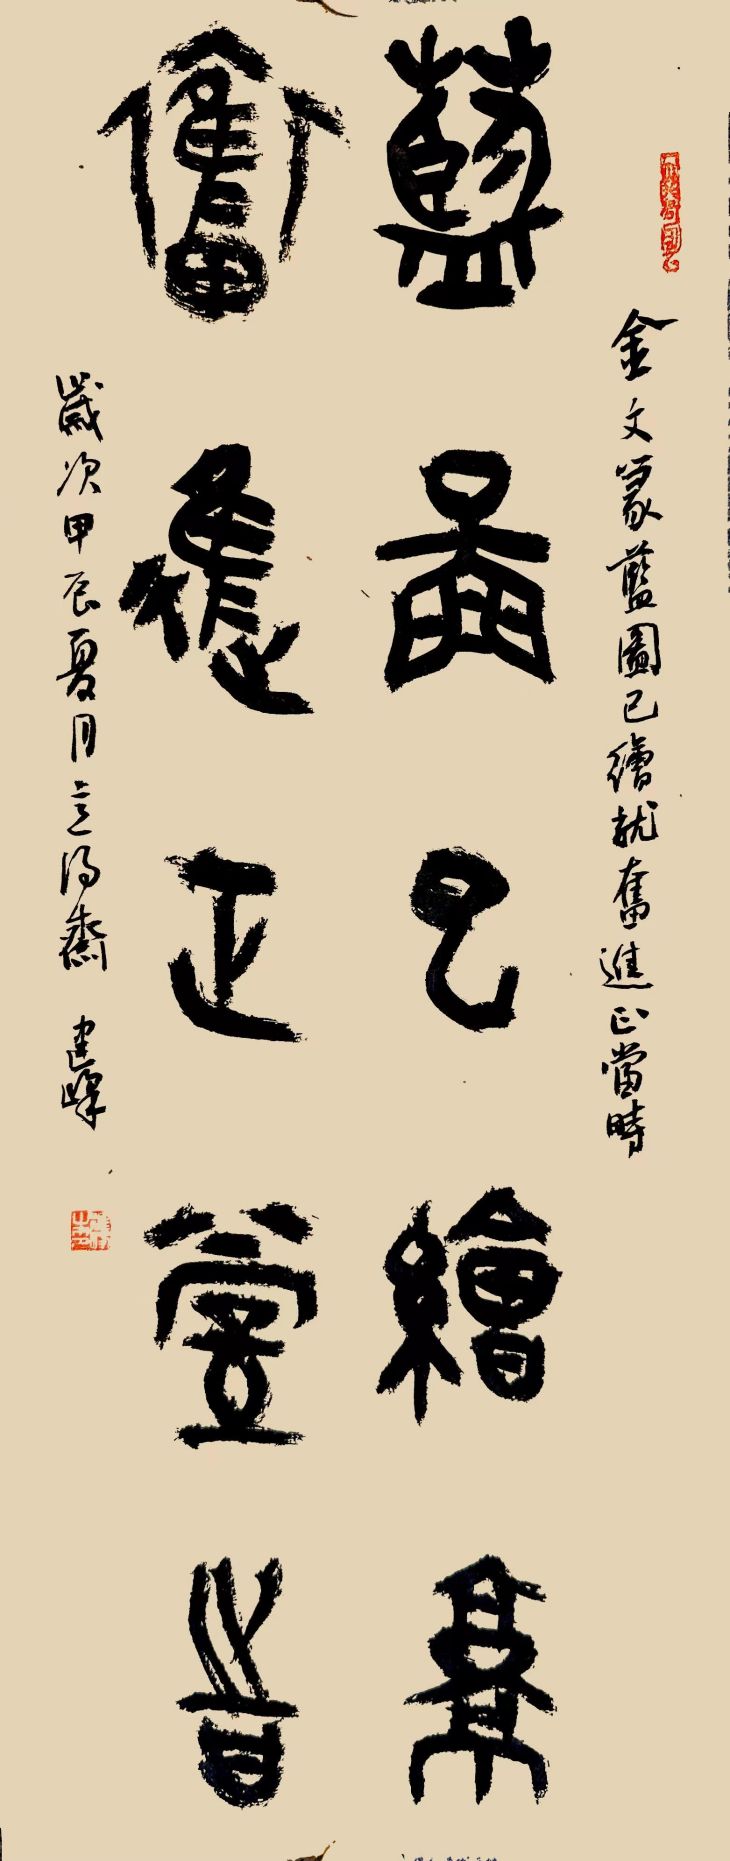 金文篆藍圖已繪就奮進正當時
藍圖已繪就
奮進正當時
歲次甲辰夏月立得齋 建峰